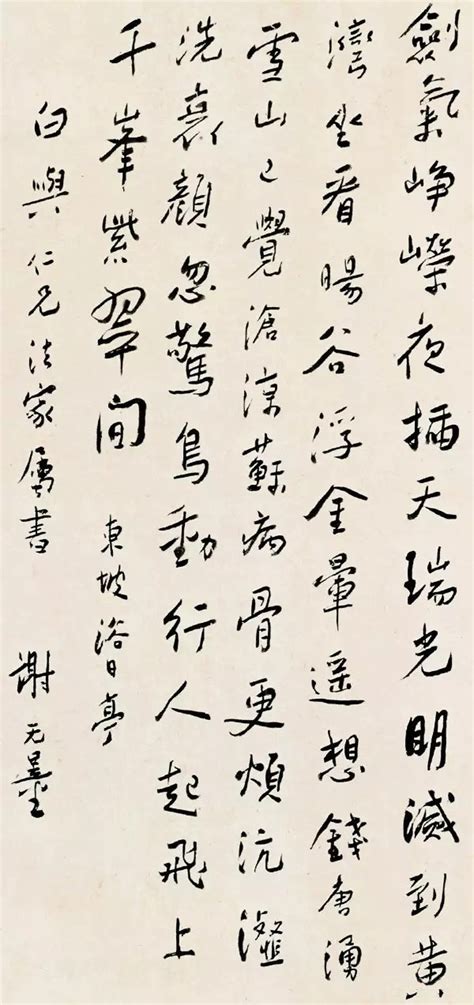 劍氣崢嶸夜插天瑞光明滅到黃
灣坐看暘谷浮金暈遥想錢唐湧
雪山已覺滄涼蘇病骨更煩沆瀣
洗衰顏忽驚鳥動行人起飛上
千峯紫翠間 東坡浴日亭
白與仁兄法家属書 謝无量